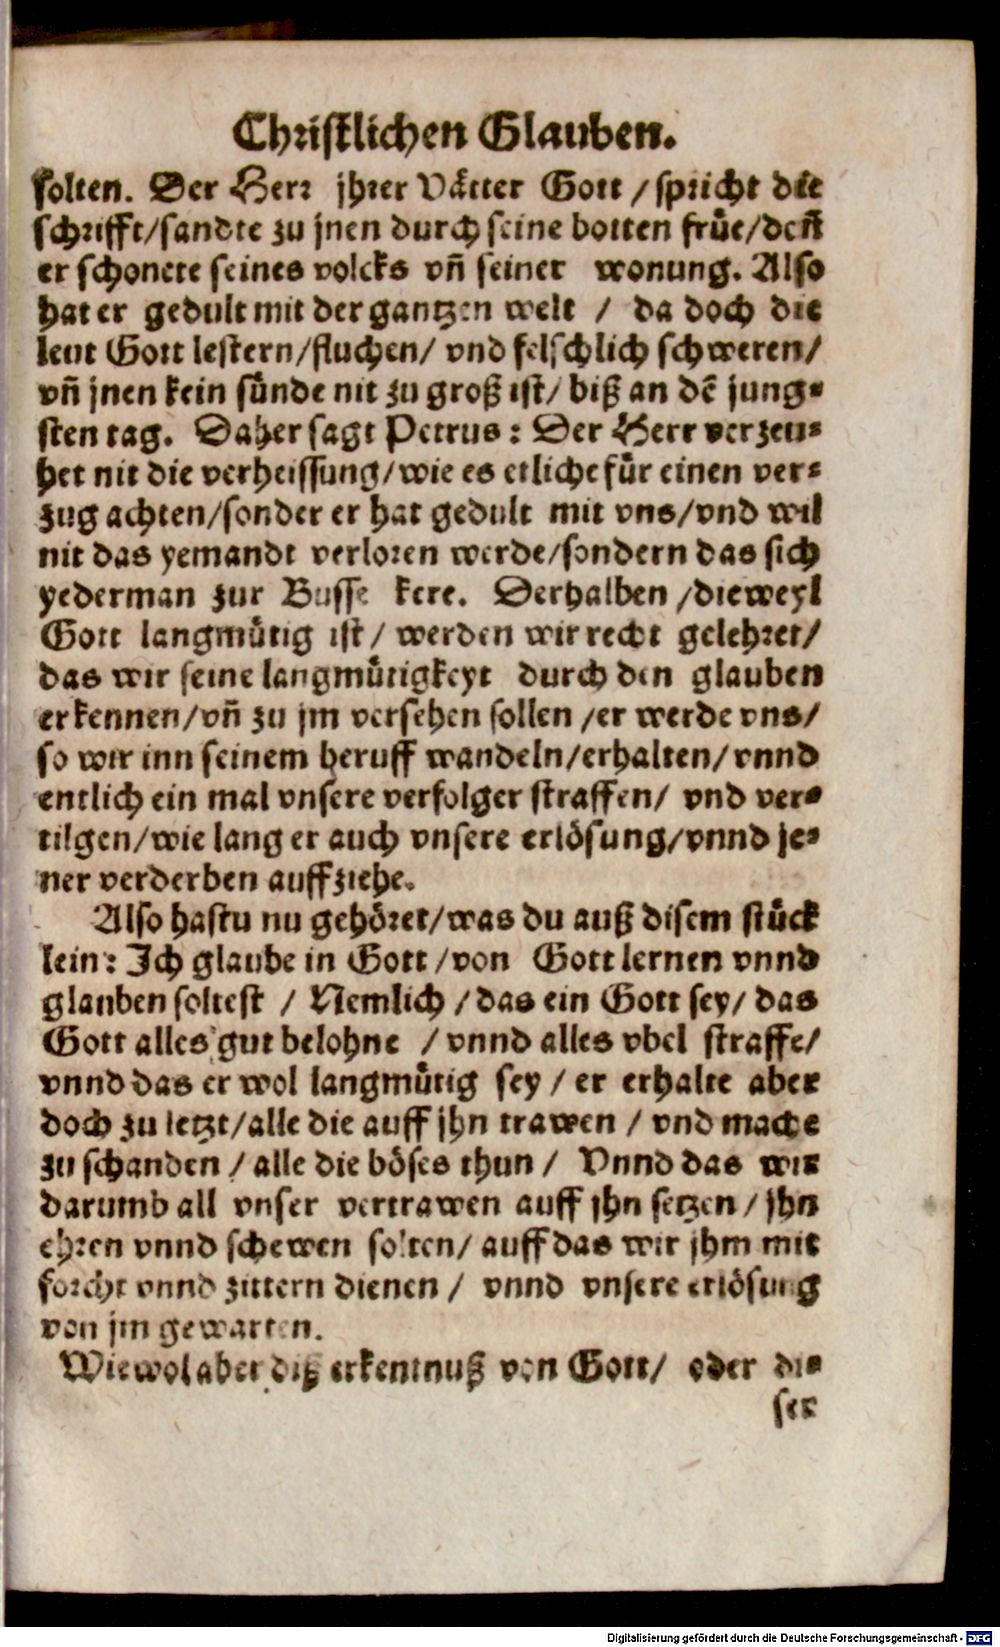 Christlichen Glauben.
solten. Der Herr jhrer Vätter Gott / spricht die
schrifft/sandte zu jnen durch seine botten früe/deñ
er schonete seines volcks vñ seiner wonung. Also
hat er gedult mit der gantzen welt / da doch die
leut Gott lestern/fluchen/ vnd felschlich schweren/
vñ jnen kein sünde nit zu groß ist/ biß an dẽ jung-
sten tag. Daher sagt Petrus: Der Herr verzeu-
het nit die verheissung/wie es etliche für einen ver-
zug achten/sonder er hat gedult mit vns/vnd wil
nit das yemandt verloren werde/sondern das sich
yederman zur Busse kere. Derhalben /dieweyl
Gott langmütig ist / werden wir recht gelehret/
das wir seine langmütigkeyt durch den glauben
erkennen/vñ zu jm versehen sollen /er werde vns/
so wir inn seinem beruff wandeln/erhalten/vnnd
entlich ein mal vnsere verfolger straffen/ vnd ver-
tilgen/wie lang er auch vnsere erlösung/vnnd je-
ner verderben auffziehe.
Also hastu nu gehöret/was du auß disem stück
lein: Ich glaube in Gott /von Gott lernen vnnd
glauben soltest / Nemlich /das ein Gott sey/ das
Gott alles gut belohne / vnnd alles vbel straffe/
vnnd das er wol langmütig sey / er erhalte aber
doch zu letzt/alle die auff jhn trawen / vnd mache
zu schanden / alle die böses thun / Vnnd das wir
darumb all vnser vertrawen auff jhn setzen / jhn
ehren vnnd schewen solten/ auff das wir jhm mit
forcht vnnd zittern dienen / vnnd vnsere erlösung
von jm gewarten.
Wiewol aber diß erkentnuß von Gott/ oder die-
ser
Digitalisierung gefördert durch die Deutsche Forschungsgemeinschaft - DFG